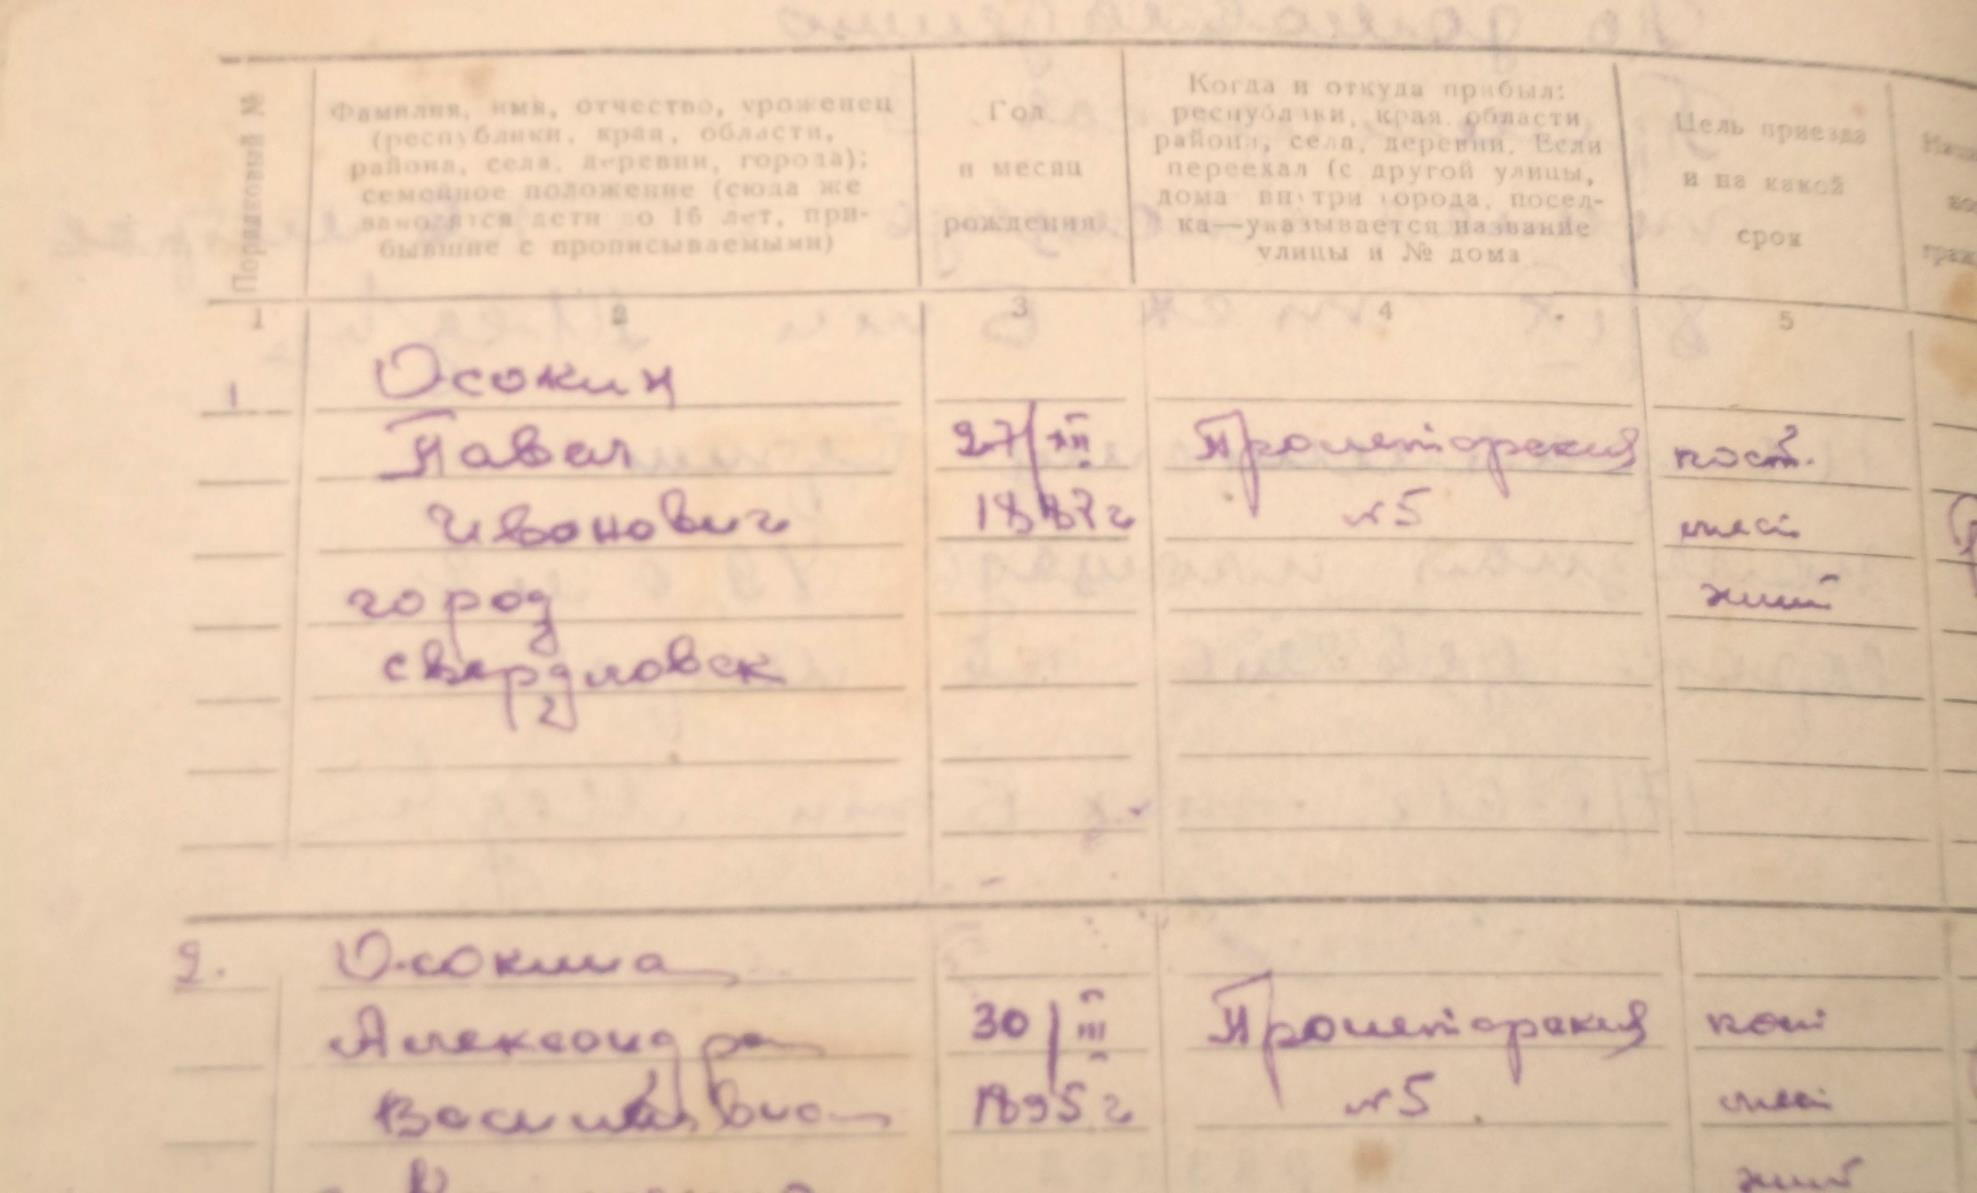 Порядковый №
Фамилия, имя, отчество, уроженец
(республики, края, области,
района, села, деревни, города);
семейное положение (сюда же
заносятся дети до 16 лет, при-
бывшие с прописываемыми)
Год
и месяц
рождения
Когда и откуда прибыл:
республики, края, области
района, села, деревни. Если
переехал (с другой улицы,
дома внутри города, посел-
ка—указывается название
улицы и № дома
Цель приезда
и на какой
срок
1 2 3 4 5
1 Осокин
Павел 27 Пролетарская пост.
Иванович 1887 г №5 мест
город жит
свердловск
2. Осокина
Александра 30 III Пролетарская пост
Васильевна 1895 г №5 мест
жит